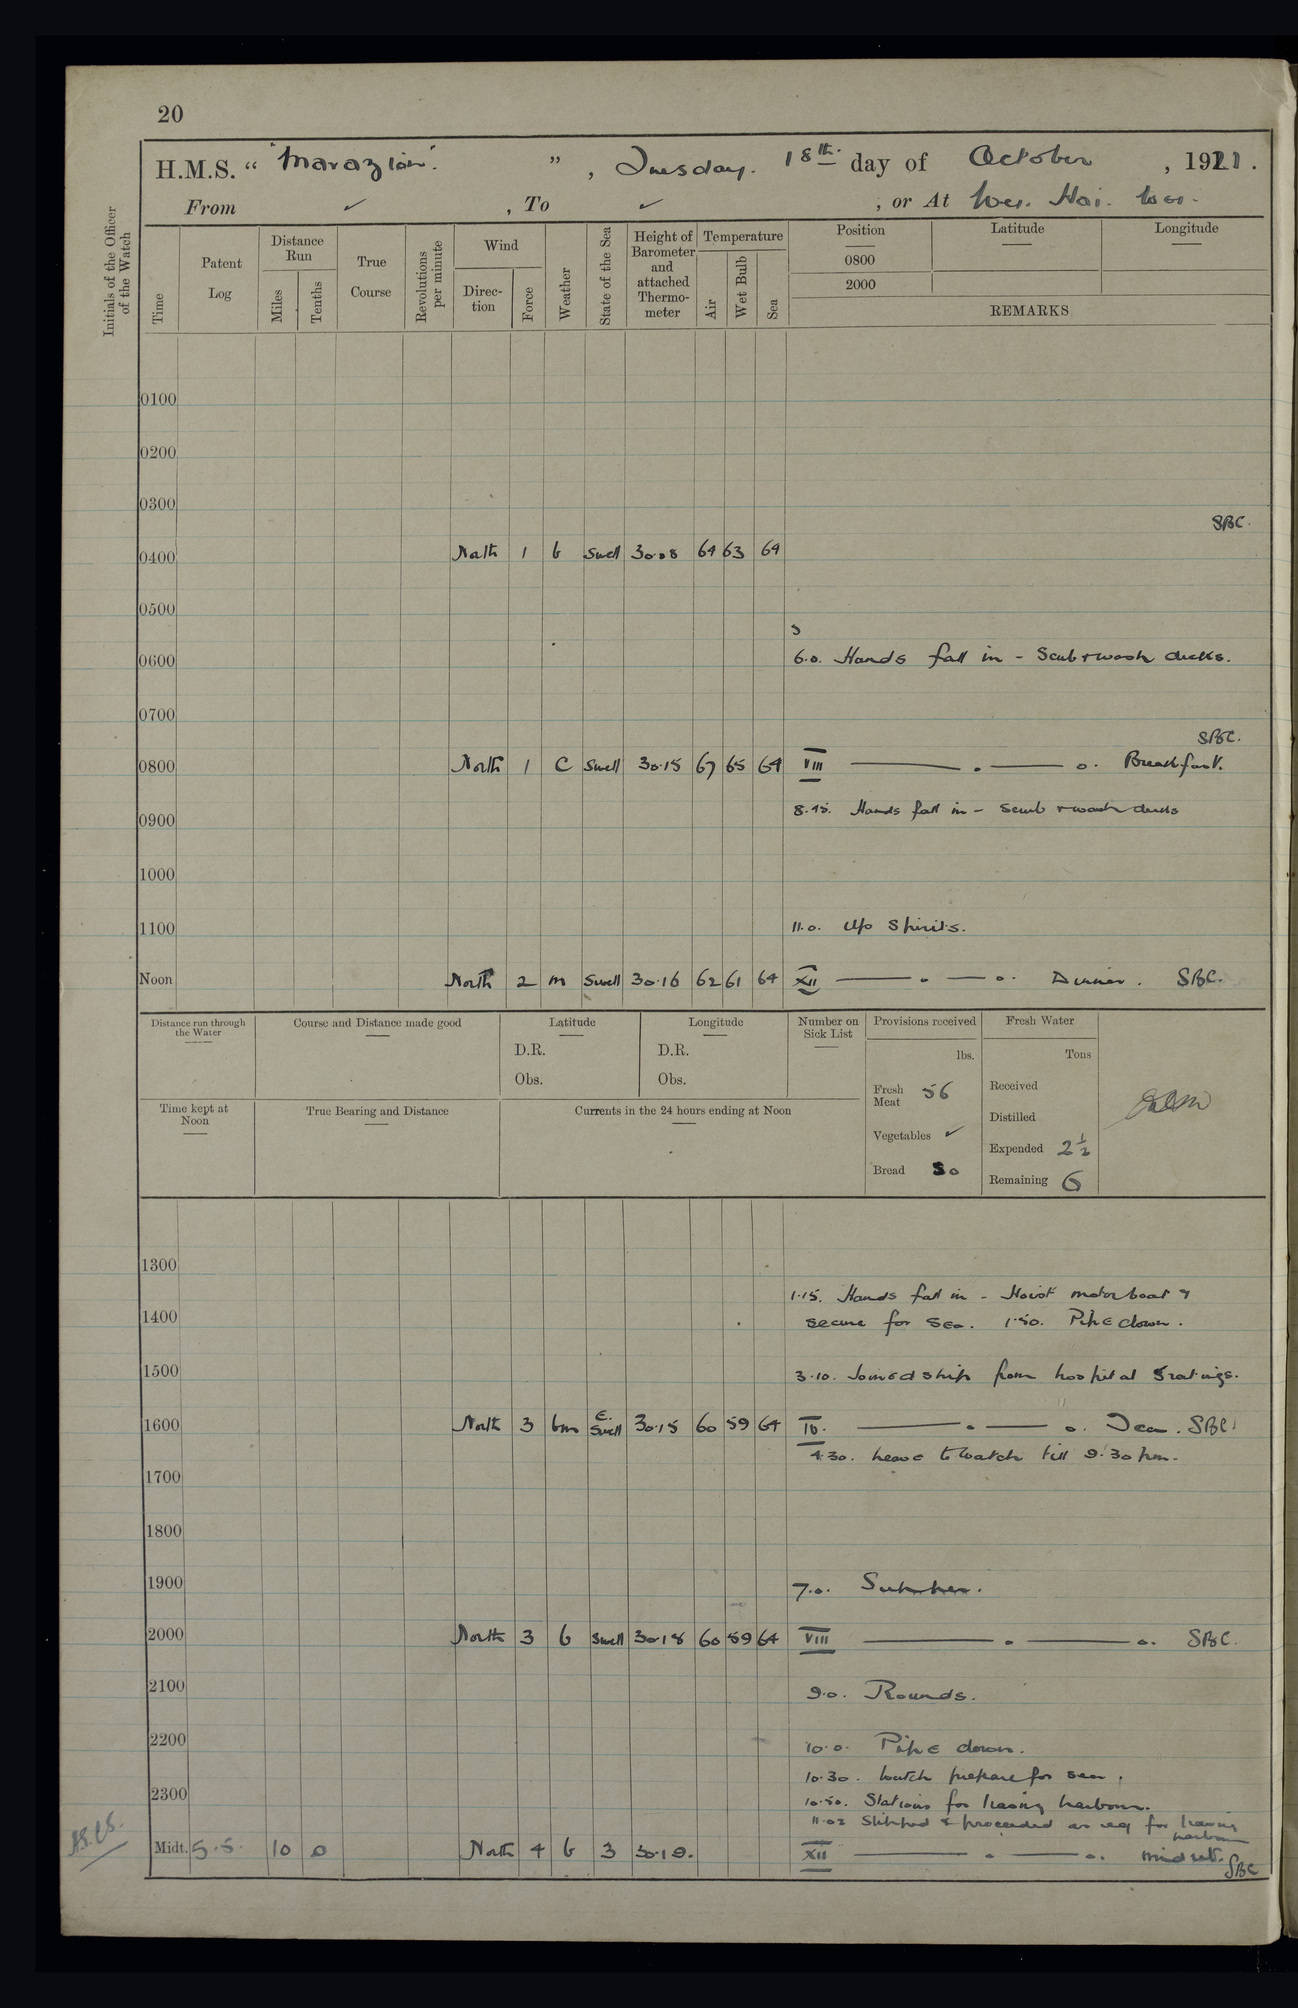 20
H.M.S. “ "Marazion". ”, Tuesday. 18th. day of October, 1921.
From ✓, To ✓, or At Wei. Hai. Wei.
Initials of the Officer of the Watch
Time
Patent Log
Distance Run
Miles
Tenths
True Course
Revolutions per minute
Wind
Direction
Force
Weather
State of the Sea
Height of Barometer and attached Thermometer
Temperature
Air
Wet Bulb
Sea
Position
Latitude
Longitude
0800
2000
REMARKS
0100
0200
0300
SBC.
0400 North 1 b Swell 30.08 64 63 64
0500
0600 6.0. Hands fall in - Scrub & wash decks.
0700
SBC.
0800 North 1 C Swell 30.15 67 65 64 VIII Breakfast.
8.45. Hands fall in - scrub & wash decks
0900
1000
1100 11.0. Up Spirits.
Noon North 2 m Swell 30.16 62 61 64 XII Dinner. SBC.
Distance run through the Water
Course and Distance made good
Latitude
D.R.
Obs.
Longitude
D.R.
Obs.
Number on Sick List
Provisions received
lbs.
Fresh Meat 56
Vegetables ✓
Bread 50
Fresh Water
Tons
Received
Distilled
Expended 2½
Remaining 6
Time kept at Noon
True Bearing and Distance
Currents in the 24 hours ending at Noon
1300
1.15. Hands fall in - Hoist motor boat &
1400 secure for sea. 1.50. Pipe down.
1500 3.10. Joined ship from hospital 5 ratings.
1600 North 3 bm E. Swell 30.15 60 59 64 IV. Tea. SBC.
4.30. Leave to watch till 9.30 pm.
1700
1800
1900 7.0. Supper.
2000 North 3 b Swell 30.18 60 59 64 VIII SBC.
2100 9.0. Rounds.
2200 10.0. Pipe down.
10.30. Watch prepare for sea.
2300 10.50. Stations for leaving harbour.
11.02 Slipped & proceeded as req for leaving harbour
Midt. 5.5. 10 0 North 4 b 3 30.19. XII Midnt. SBC